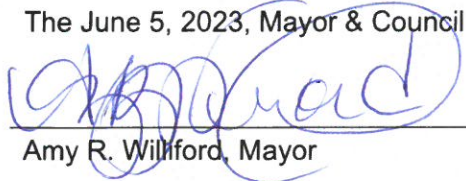 The June 5, 2023, Mayor & Council
Amy R. Williford, Mayor